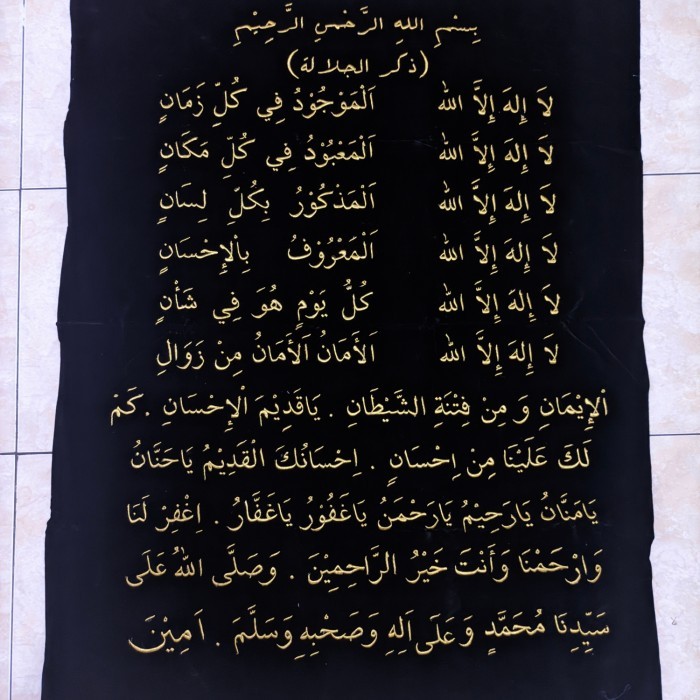 بِسْمِ اللهِ الرَّحْمنِ الرَّحِيْمِ
(ذكر الجلالة)
لاَ إِلهَ إِلاَّ الله اَلْمَوْجُوْدُ فِي كُلِّ زَمَانٍ
لاَ إِلهَ إِلاَّ الله اَلْمَعْبُوْدُ فِي كُلِّ مَكَانٍ
لاَ إِلهَ إِلاَّ الله اَلْمَذْكُوْرُ بِكُلِّ لِسَانٍ
لاَ إِلهَ إِلاَّ الله اَلْمَعْرُوْفُ بِاْلإِحْسَانِ
لاَ إِلهَ إِلاَّ الله كُلُّ يَوْمٍ هُوَ فِي شَأْنٍ
لاَ إِلهَ إِلاَّ الله اَلأَمَانُ اَلأَمَانُ مِنْ زَوَالِ
اْلإِيْمَانِ وَ مِنْ فِتْنَةِ الشَّيْطَانِ . يَاقَدِيْمَ اْلإِحْسَانِ . كَمْ
لَكَ عَلَيْنَا مِنْ اِحْسَانٍ . اِحْسَانُكَ الْقَدِيْمُ يَاحَنَّانُ
يَامَنَّانُ يَارَحِيْمُ يَارَحْمَنُ يَاغَفُوْرُ يَاغَفَّارُ . اِغْفِرْ لَنَا
وَارْحَمْنَا وَأَنْتَ خَيْرُ الرَّاحِمِيْنَ . وَصَلَّى اللهُ عَلَى
سَيِّدِنَا مُحَمَّدٍ وَعَلَى اَلِهِ وَصَحْبِهِ وَسَلَّمَ . اَمِيْنَ